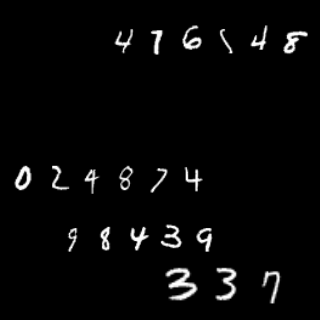 476148
024874
98439
337